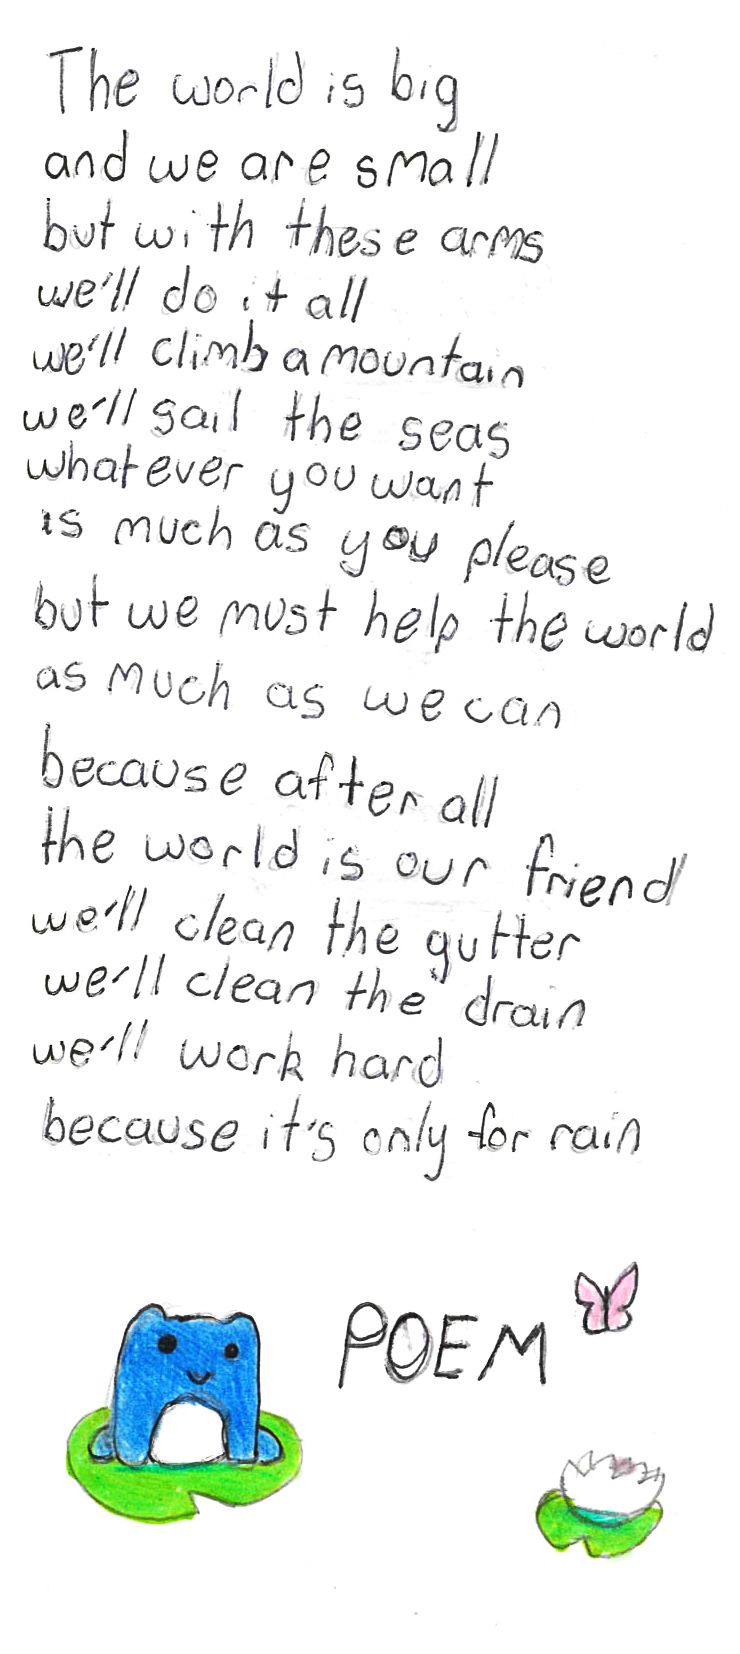 The world is big
and we are small
but with these arms
we'll do it all
we'll climb a mountain
we'll sail the seas
whatever you want
is much as you please
but we must help the world
as much as we can
because after all
the world is our friend
we'll clean the gutter
we'll clean the drain
we'll work hard
because it's only for rain
POEM